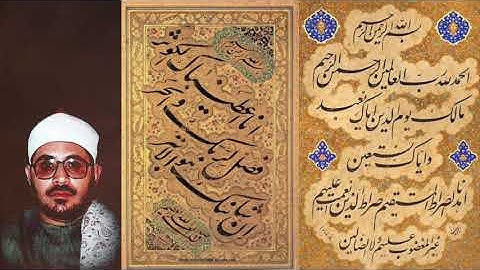 بسم الله الرحمن الرحيم
الحمد لله رب العالمين الرحمن الرحيم
مالك يوم الدين اياك نعبد
واياك نستعين
اهدنا الصراط المستقيم صراط الذين انعمت عليهم
غير المغضوب عليهم ولا الضالين
بسم الله الرحمن الرحيم
انا اعطيناك الكوثر
فصل لربك وانحر
ان شانئك هو الابتر